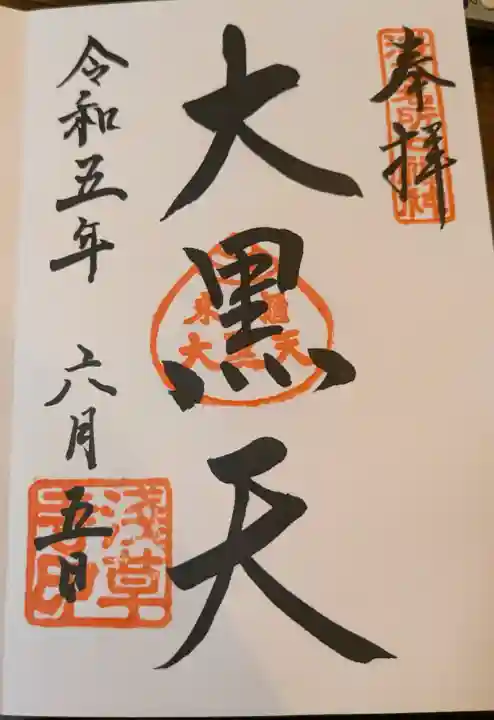 奉拝
大黒天
米櫃
大黒天
令和五年 六月五日
浅草
寺印